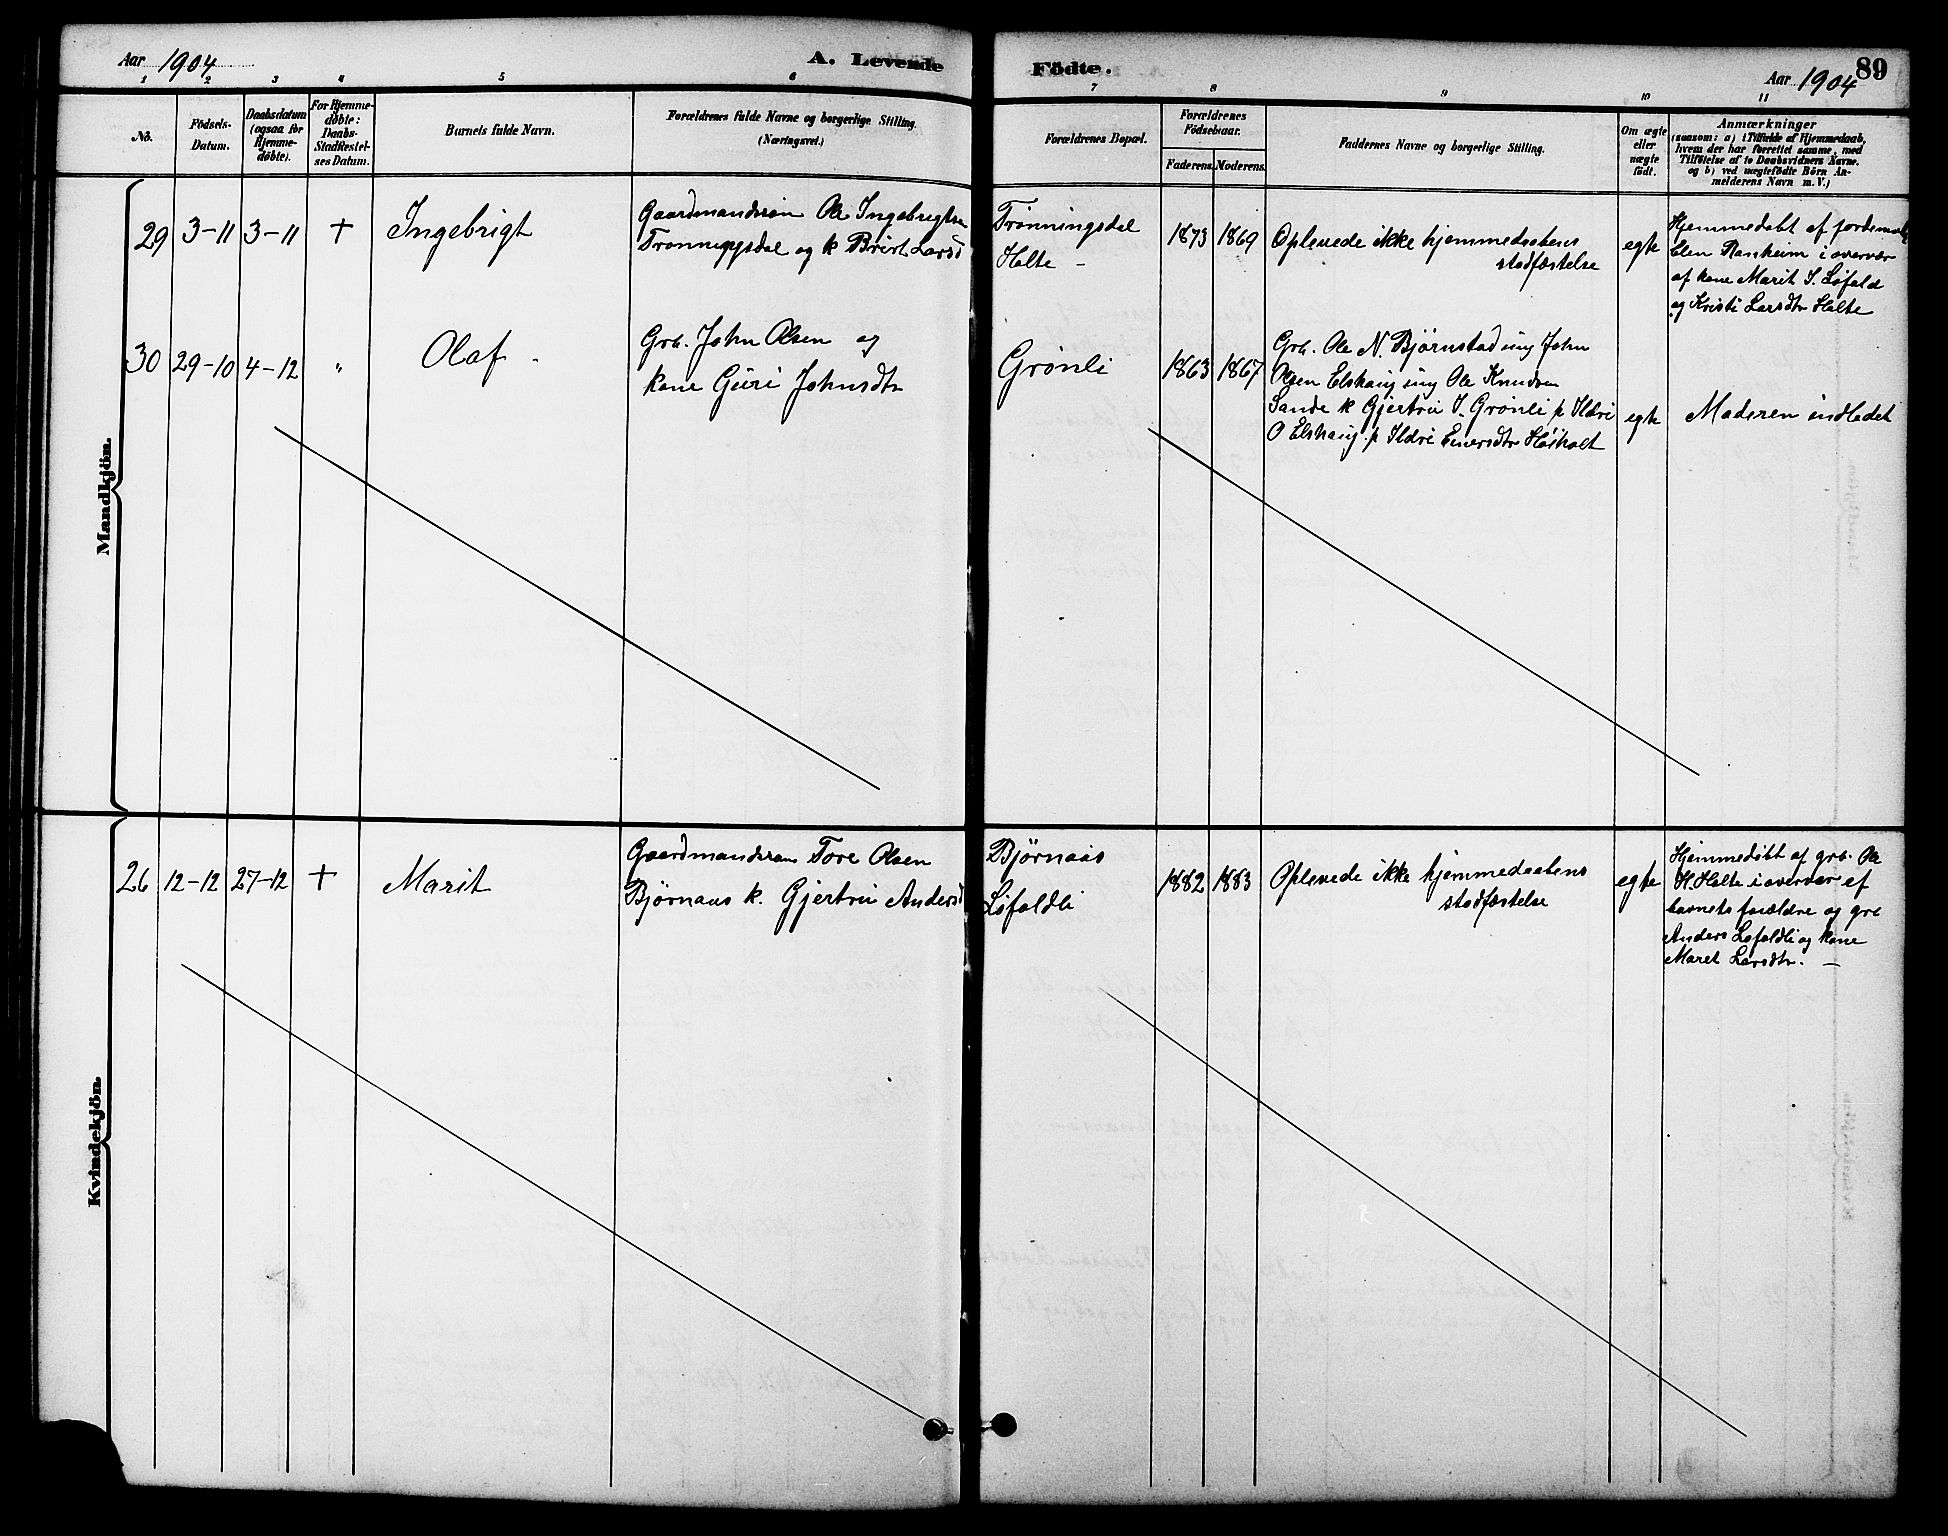 Aar 1904
A. Levende
Födte.
Aar 1904
89
1 2 3 4 5 6 7 8 9 10 11
No.
Födsels-
Datum.
Daabsdatum
(ogsaa for
Hjemme-
døbte).
For Hjemme-
døbte:
Daabs-
Stadfæstel-
ses Datum.
Barnets fulde Navn.
Forældrenes fulde Navne og borgerlige Stilling.
(Næringsvei.)
Forældrenes Bopæl.
Forældrenes
Födselsaar.
Faderens.
Moderens.
Faddernes Navne og borgerlige Stilling.
Om ægte
eller
uægte
født.
Anmærkninger
(saasom: a) i Tilfælde af Hjemmedaab,
hvem der har forrettet samme, med
Tilføielse af to Daabsvidners Navne,
og b) ved uægtefödte Börn An-
melderens Navn m. V.)
Mandkjön.
29 3-11 3-11 + Ingebrigt
Gaardmandssøn Ole Ingebrigtsn
Trønningsdal og k Brirt Larsd
Trønningsdal
Halte -
1873 1869
Oplevede ikke hjemmedaabens
stadfæstelse
egte
Hjemmedøbt af jordemoder
Elen Ranheim i overvær
af kone Marit J. Løfald
og Kristi Larsdtr Halte
30 29-10 4-12 " Olaf -
Grb. John Olsen og
kone Guri Johnsdtr
Grønli
1863 1867
Grb. Ole N. Bjørnstad ung John
Olsen Elshaug ung Ole Knudsen
Sande k Gjertru J. Grønli p Ildri
O Elshaug p Ildri Einersdtr Høiholt
egte
Moderen indledet
Kvindekjön.
26 12-12 27-12 + Marit
Gaardmandssøn Tore Olsen
Bjørnaas k. Gjertru Andersd
Bjørnaas
Løfaldli
1882 1883
Oplevede ikke hjemmedaabens
stadfæstelse
egte
Hjemmedøbt af grb. Ole
H. Halte i overvær af
barnets forældre og grb
Anders Løfaldli og kone
Maret Larsdtr. -